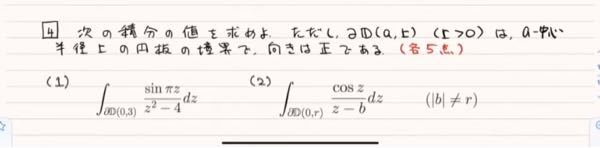 4 次の積分の値を求めよ. ただし, ∂D(a,r) (r>0) は, a-中心
半径rの円板の境界で, 向きは正である. (各5点)
(1) ∫∂D(0,3) sin πz / z² − 4 dz (2) ∫∂D(0,r) cos z / z − b dz (|b| ≠ r)